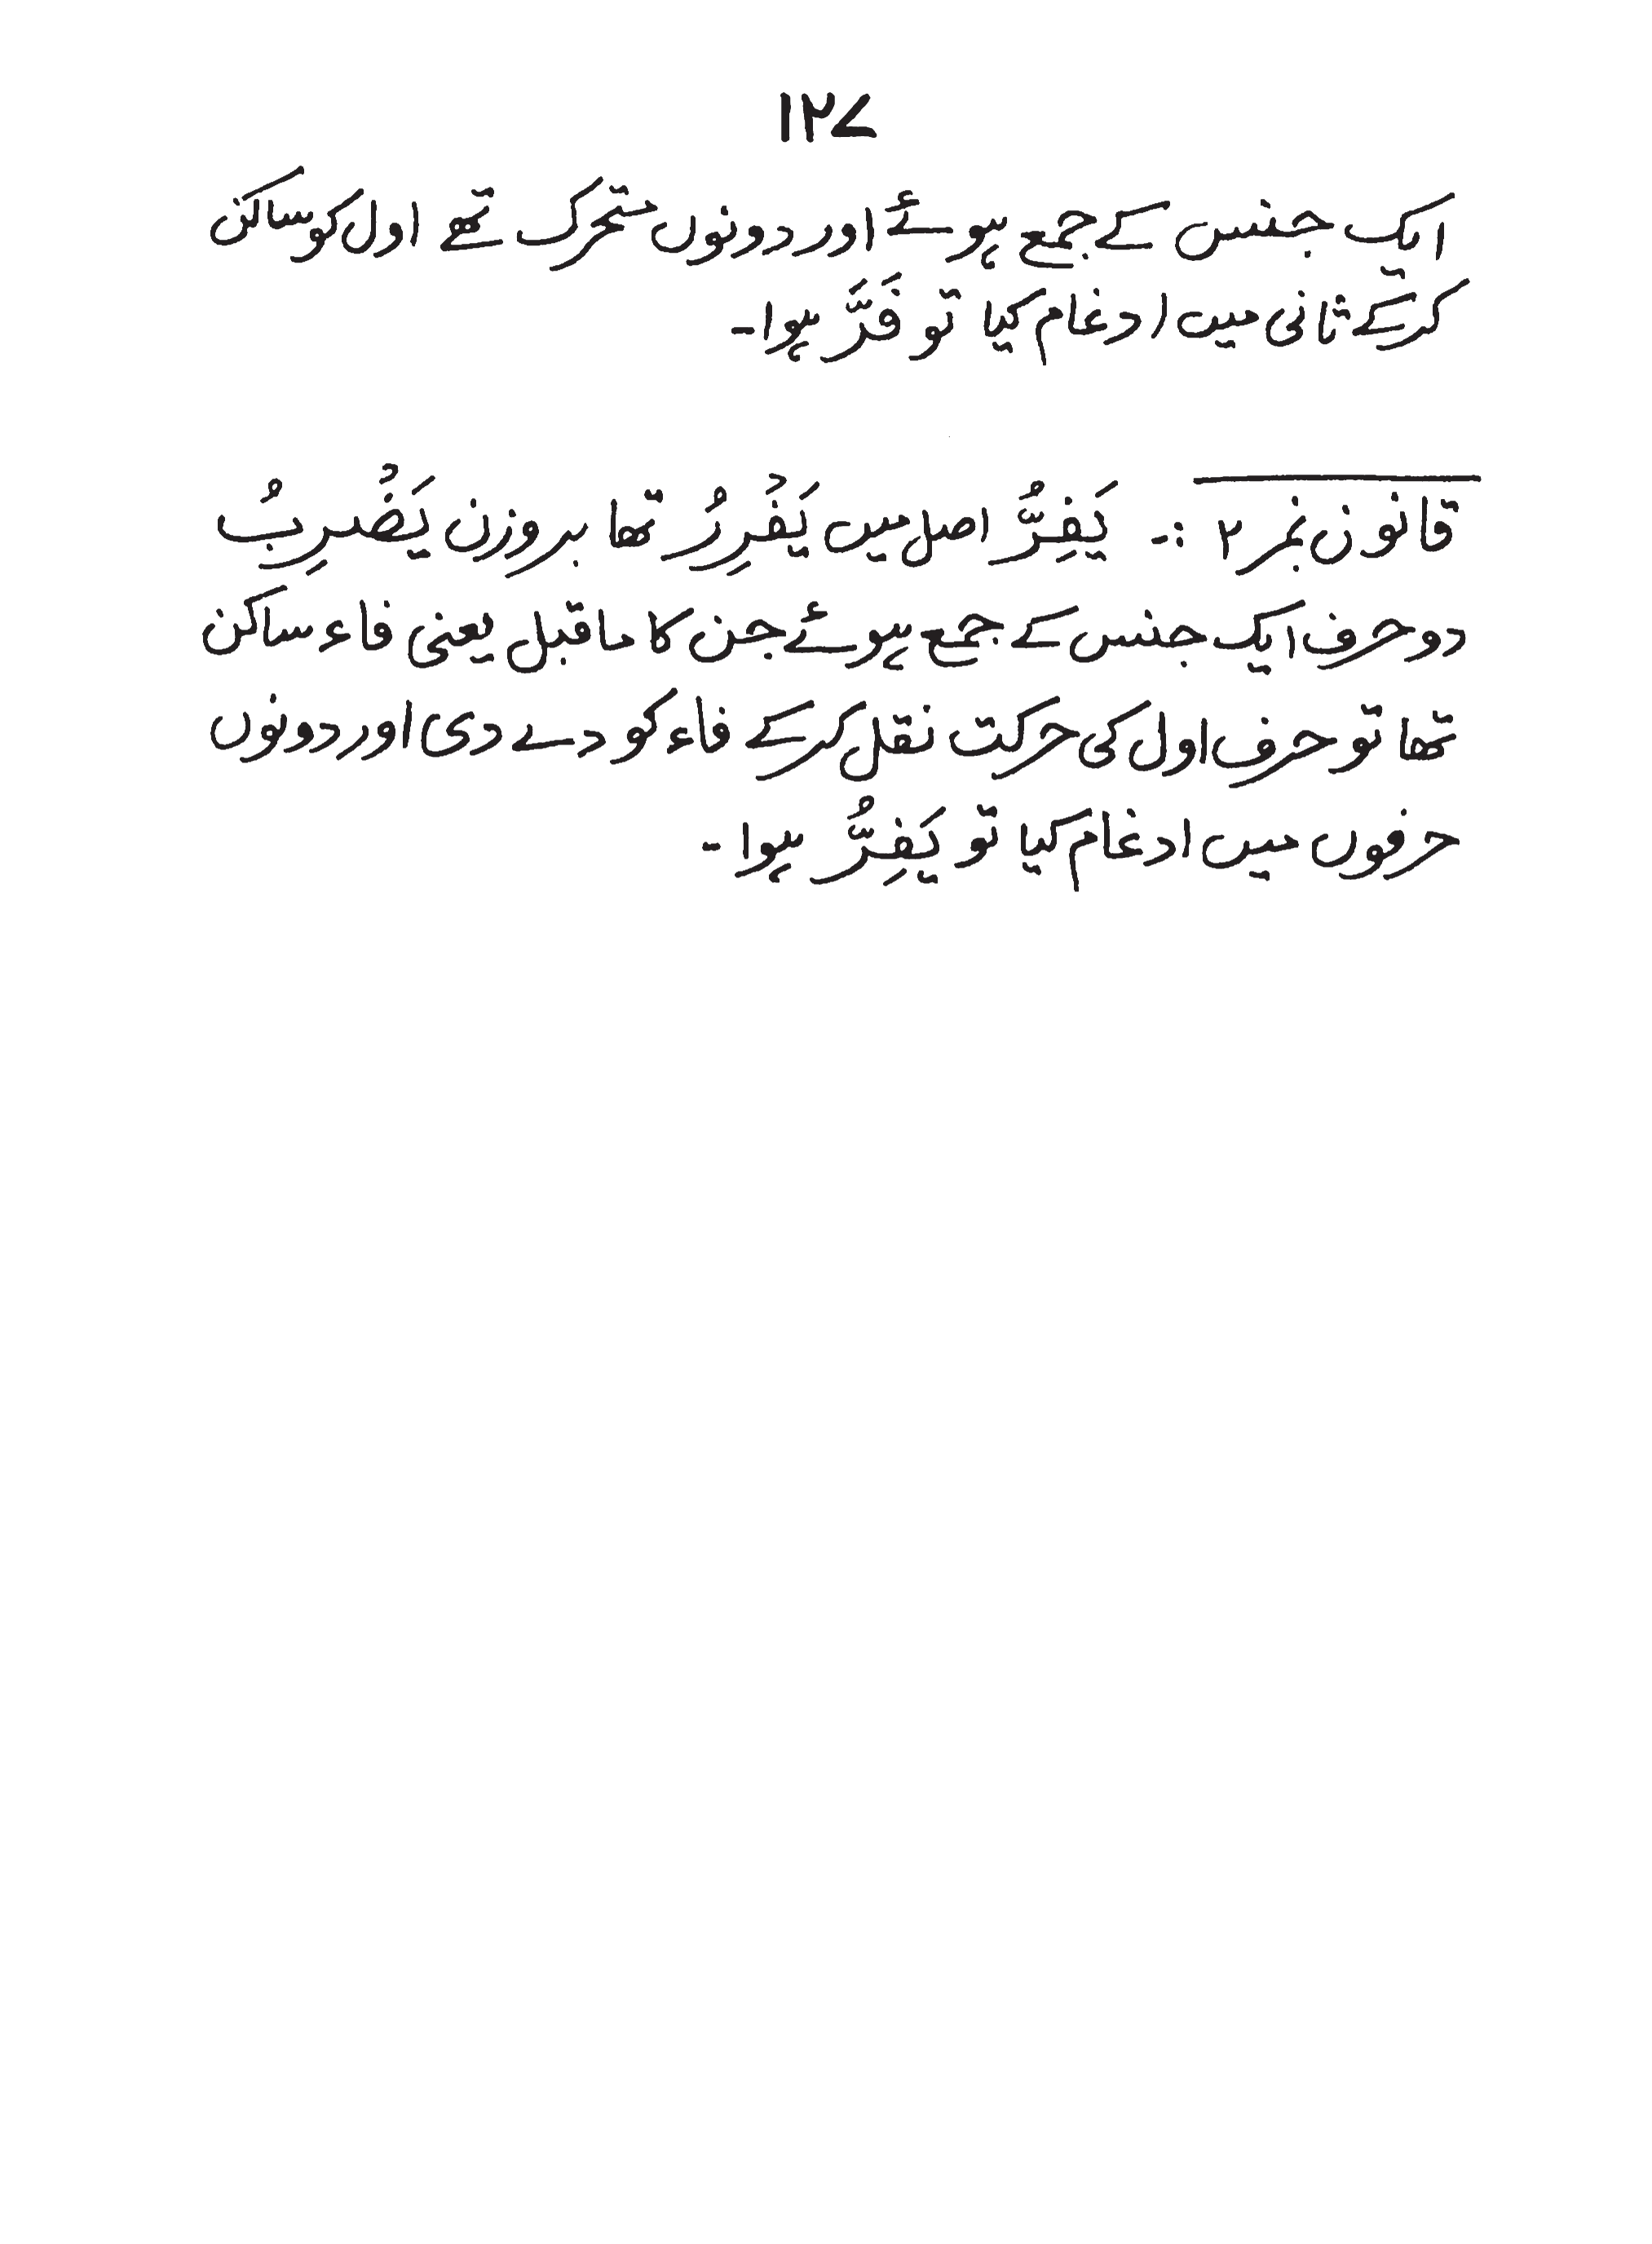 ۱۲۷
ایک جنس کے جمع ہوئے اور دونوں متحرک تھے اول کو ساکن
کرکے ثانی میں ادغام کیا تو فَرَّ ہوا۔
قانون نمبر ۲ :۔ یَفِرُّ اصل میں یَفْرِرُ تھا بروزن یَضْرِبُ
دو حرف ایک جنس کے جمع ہوئے جن کا ماقبل یعنی فاء ساکن
تھا تو حرف اول کی حرکت نقل کرکے فاء کو دے دی اور دونوں
حرفوں میں ادغام کیا تو یَفِرُّ ہوا۔